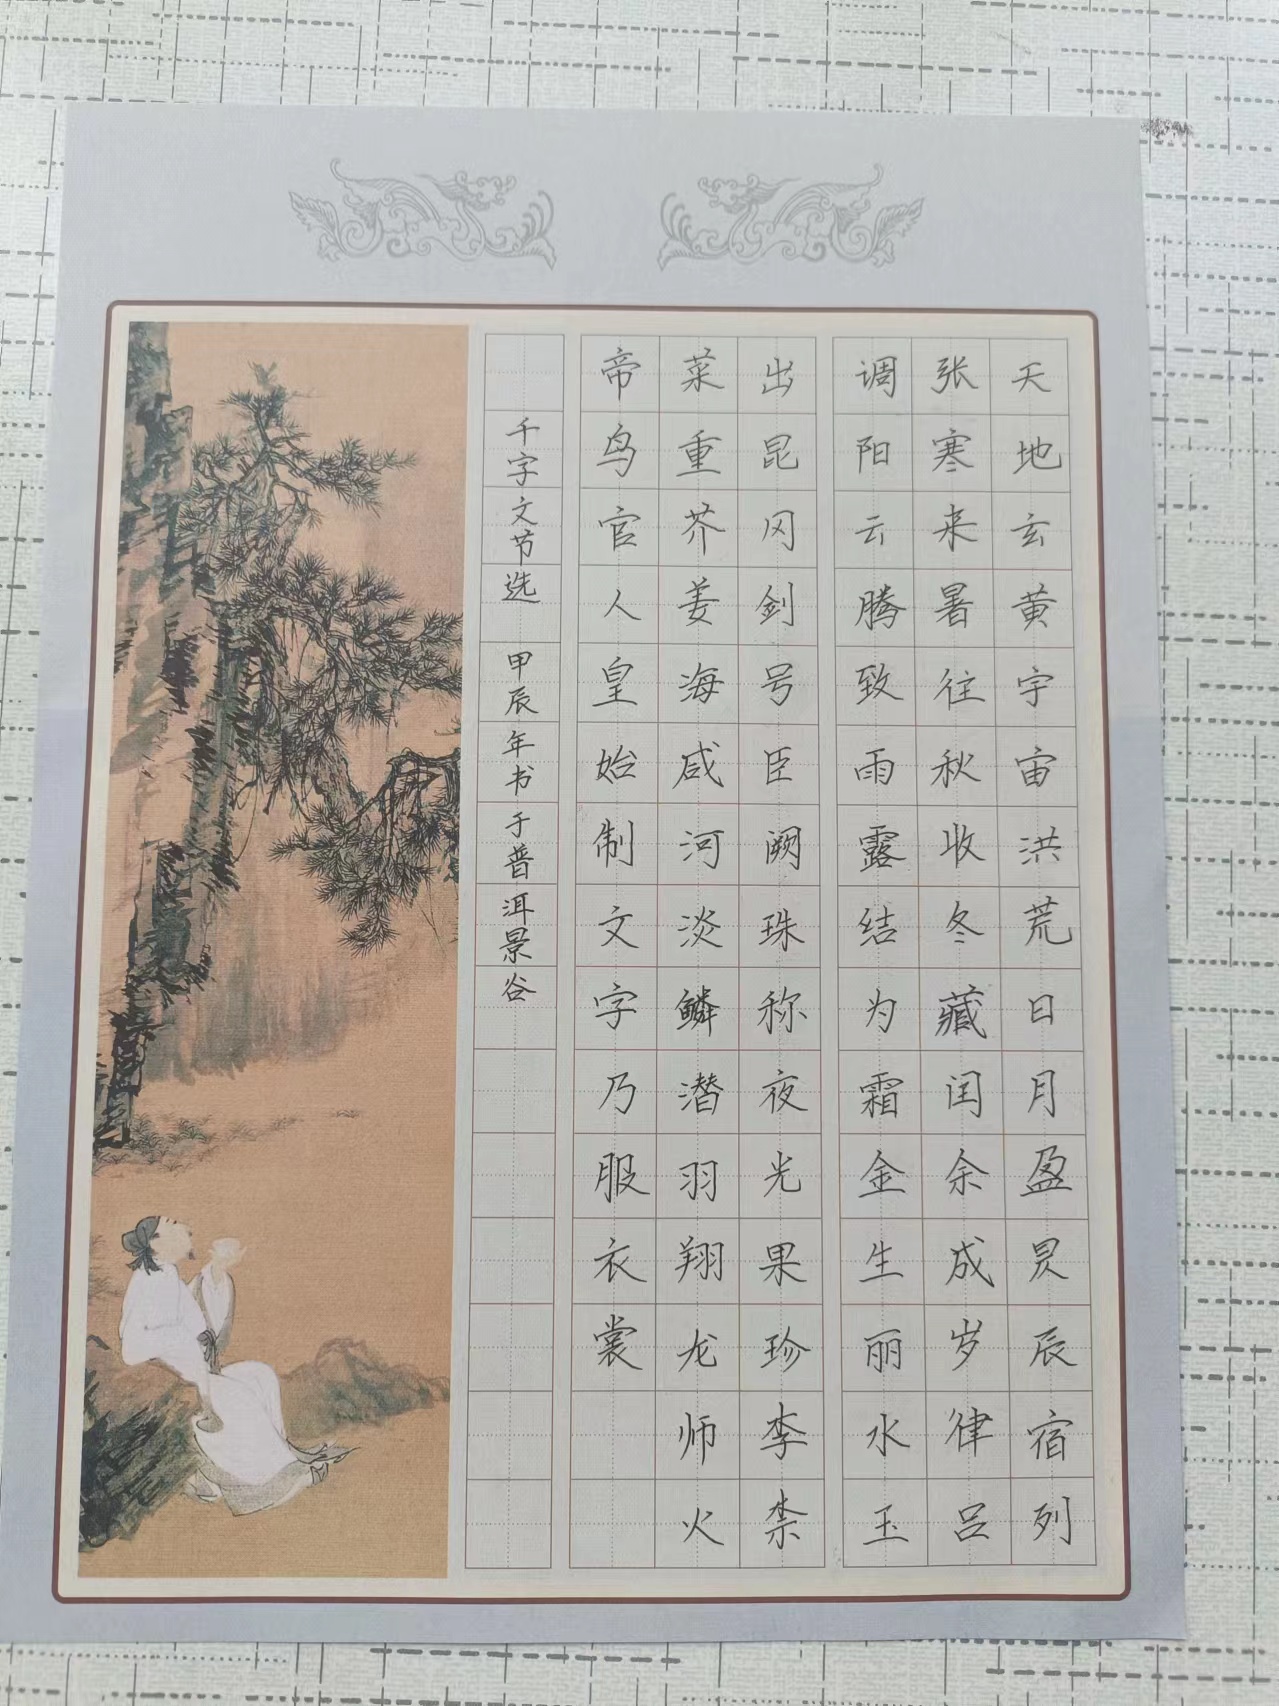 天地玄黄宇宙洪荒日月盈昃辰宿列
张寒来暑往秋收冬藏闰余成岁律吕
调阳云腾致雨露结为霜金生丽水玉
出昆冈剑号臣阙珠称夜光果珍李柰
菜重芥姜海咸河淡鳞潜羽翔龙师火
帝鸟官人皇始制文字乃服衣裳
千字文节选 甲辰年书于普洱景谷